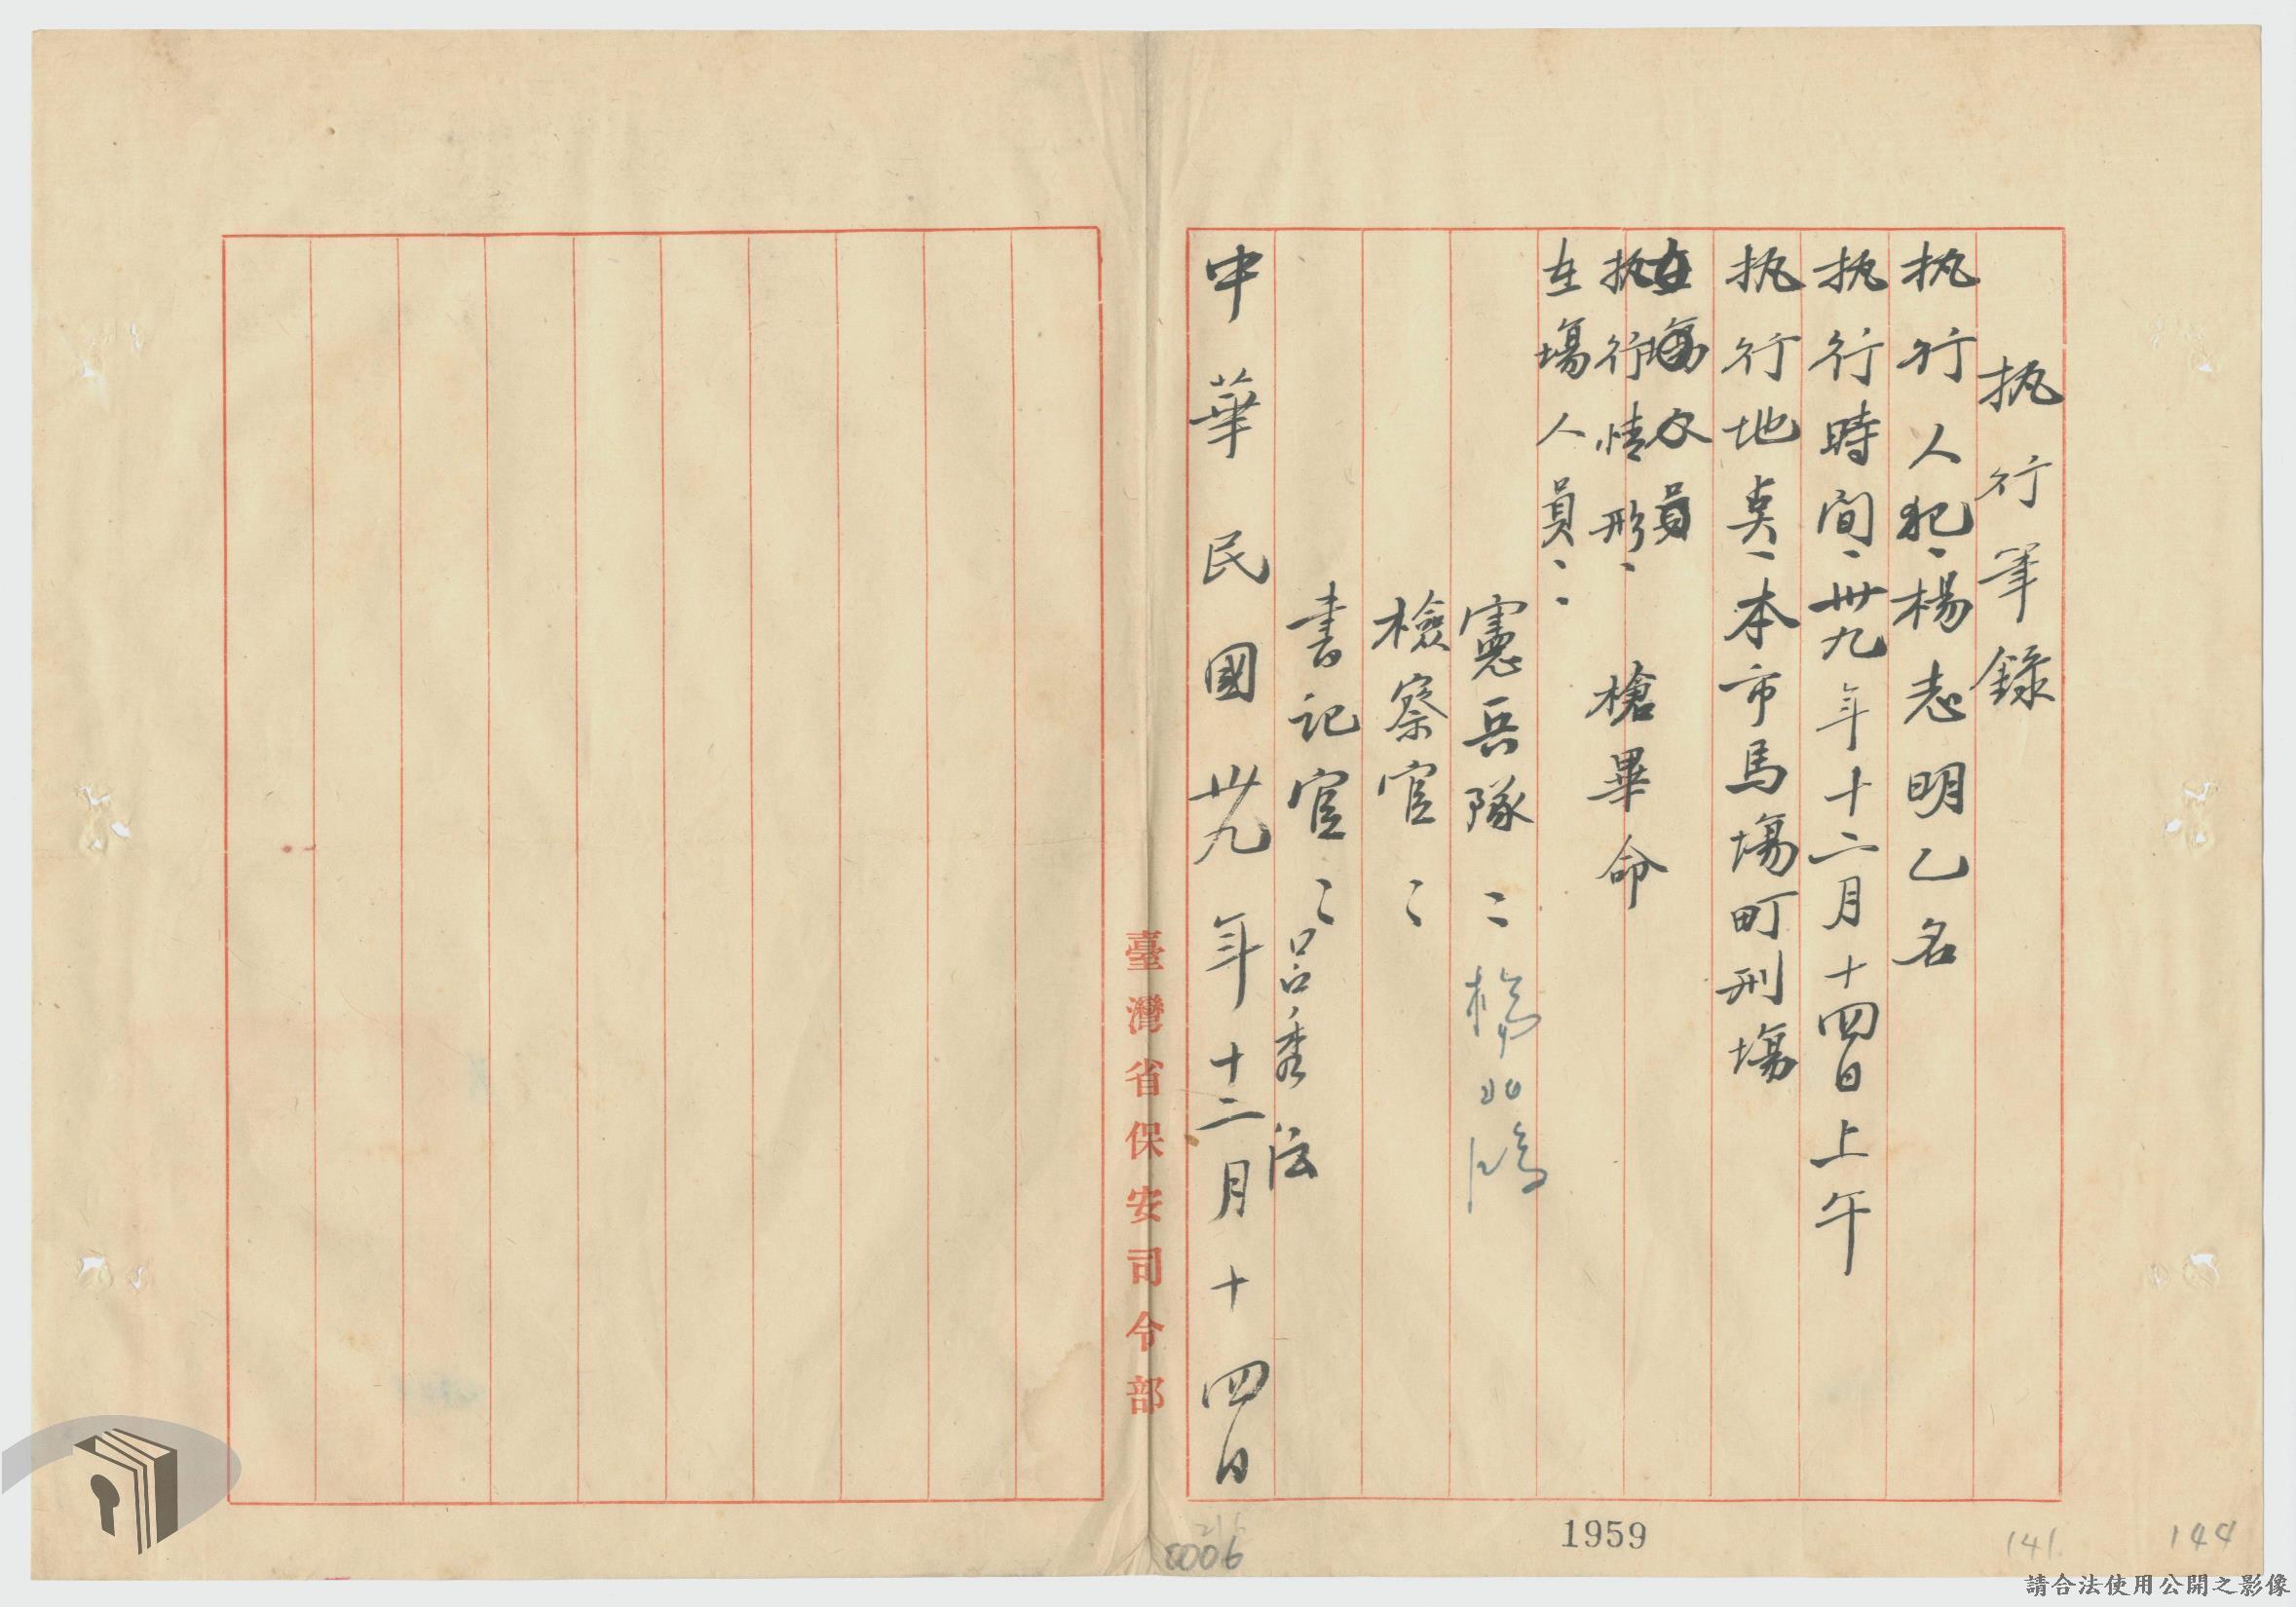 执行筆錄
执行人犯、楊志明乙名
执行時间、卅九年十二月十四日上午
执行地奌、本市馬塲町刑塲
在塲人員
执行情形、槍畢命
在塲人員：
憲兵隊：楊
檢察官：
書記官：呂秀法
中華民國卅九年十二月十四日
臺灣省保安司令部
1959
141
144
請合法使用公開之影像